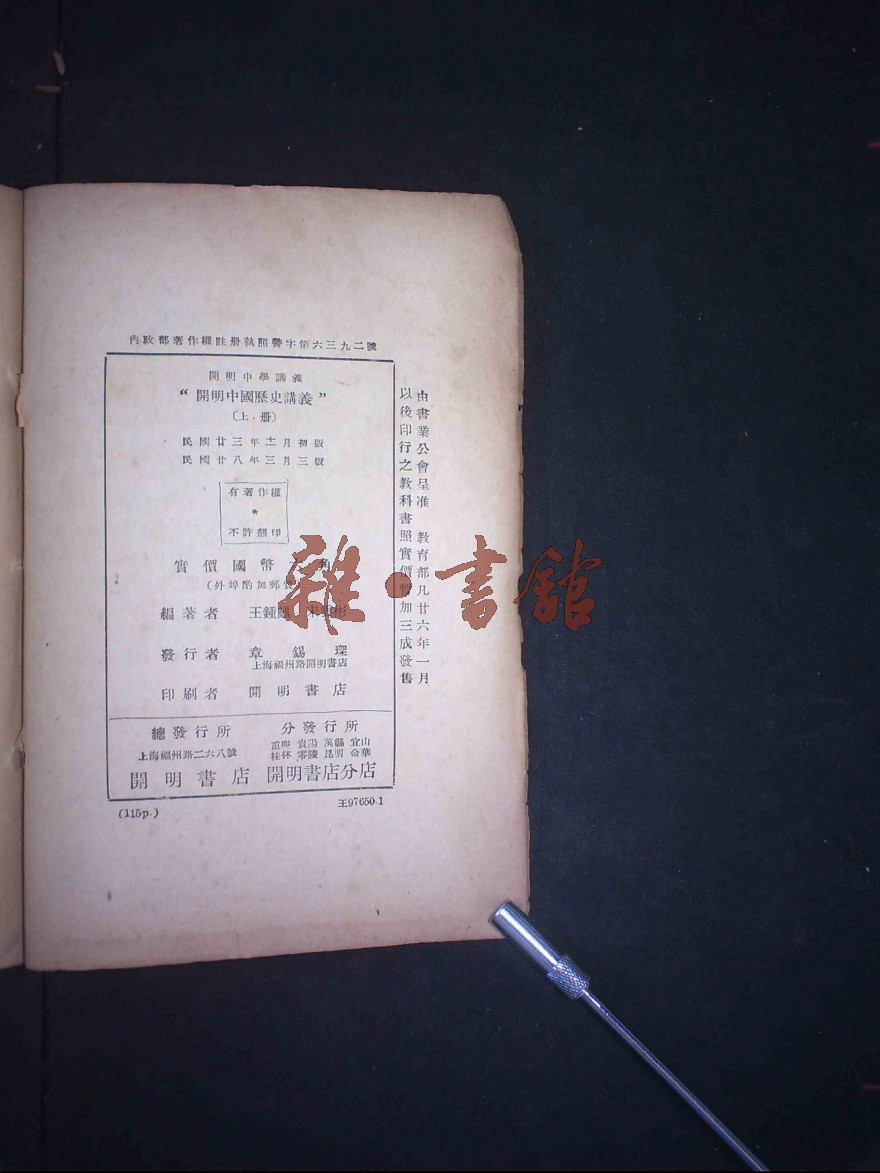 內政部著作權註册執照警字第六三九二號
開明中學講義
“開明中國歷史講義”
(上册)
民國廿三年十一月初版
民國廿八年三月三版
有著作權
*
不許翻印
實價國幣 角
(外埠酌加郵費)
編著者 王鍾麒 宋雲彬
發行者 章錫琛
上海福州路開明書店
印刷者 開明書店
總發行所
上海福州路二六八號
開明書店
分發行所
重慶 貴陽 萬縣 宜山
桂林 零陵 昆明 金華
開明書店分店
(115p.)
王97650.1
由書業公會呈准 教育部凡廿六年一月
以後印行之教科書照實價暫加三成發售
雜·書館